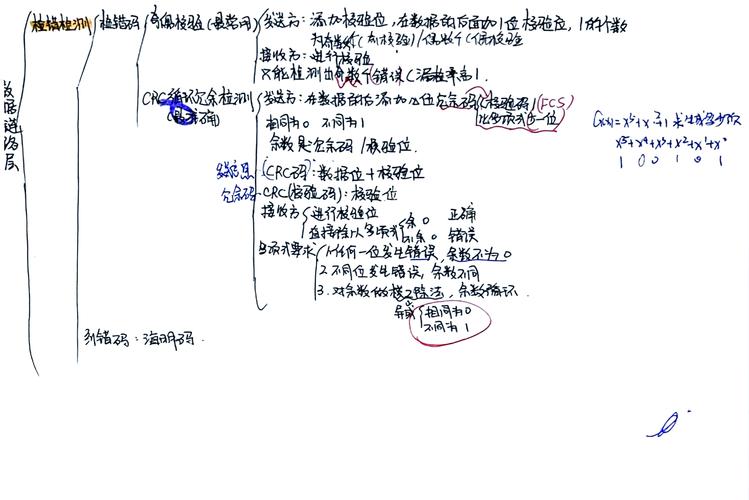 数据链路层
检错检测
检错码
奇偶校验(最常用)
发送方:添加校验位,在数据的后面加1位校验位,1的个数
为奇数个(奇校验)/偶数个(偶校验
接收方:进行校验
只能检测出奇数个错误(漏检率高).
CRC循环冗余检测
(最准确)
发送方:在数据的后添加n位冗余码(校验码)(FCS)
比多项式少一位
相同为0 不同为1
余数是冗余码/校验位.
CRC码:数据位+校验位
冗余码
CRC(校验码):校验位
接收方
进行校验位
直接除以多项式
余0 正确
不余0 错误
多项式要求
1.任何一位发生错误,余数不为0
2.不同位发生错误,余数不同
3.对余数做模2除法,余数循环.
异或
相同为0
不同为1
纠错码:海明码.
G(x)=x⁵+x²+1
x⁵+x⁴+x³+x²+x¹+x⁰
1 0 0 1 0 1